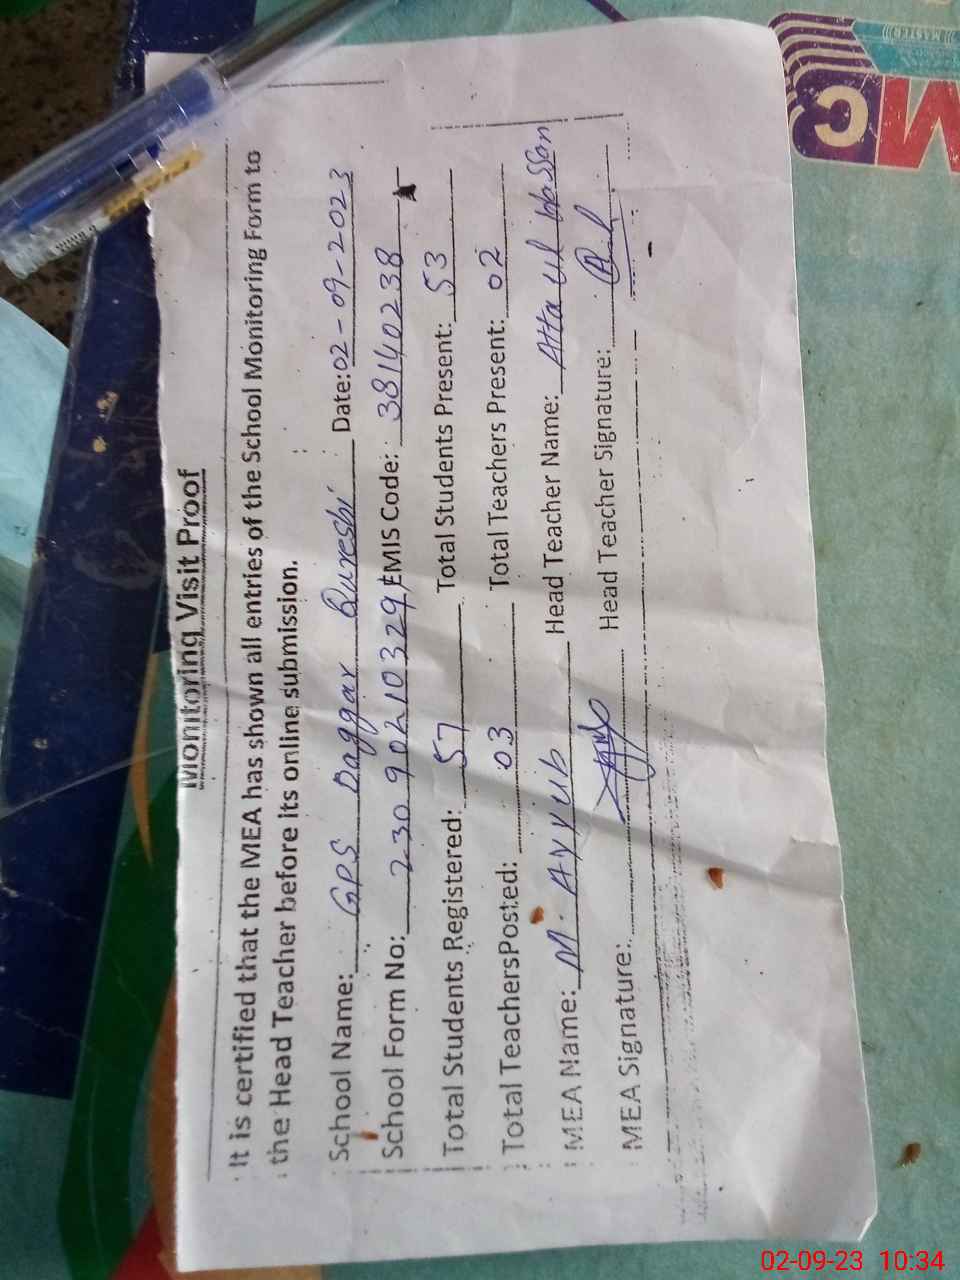 Monitoring Visit Proof
It is certified that the MEA has shown all entries of the School Monitoring Form to
the Head Teacher before its online submission.
School Name: GPS Daggar Qureshi Date: 02-09-2023
School Form No: 2309902103291 EMIS Code: 38140238
Total Students Registered: 57 Total Students Present: 53
Total Teachers Posted: 03 Total Teachers Present: 02
MEA Name: M. Ayyub Head Teacher Name: Atta ul Hassan
MEA Signature: Head Teacher Signature:
MC
MASTER
02-09-23 10:34